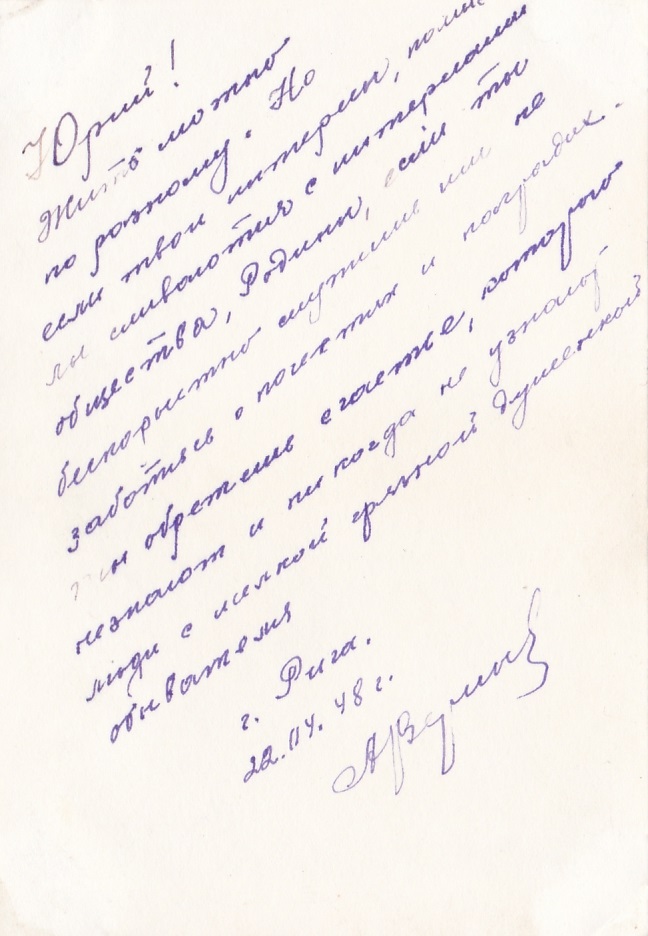 Юрий!
Жить можно
по разному. Но
если твои интересы,
сливаются с интересами
общества, Родины, если ты
бескорыстно служишь им не
заботясь о почестях и наградах.
обретешь счастье, которого
незнают и никогда не узнают
люди с мелкой грязной душенкой
обывателя
г. Рига.
22.IV.48 г.